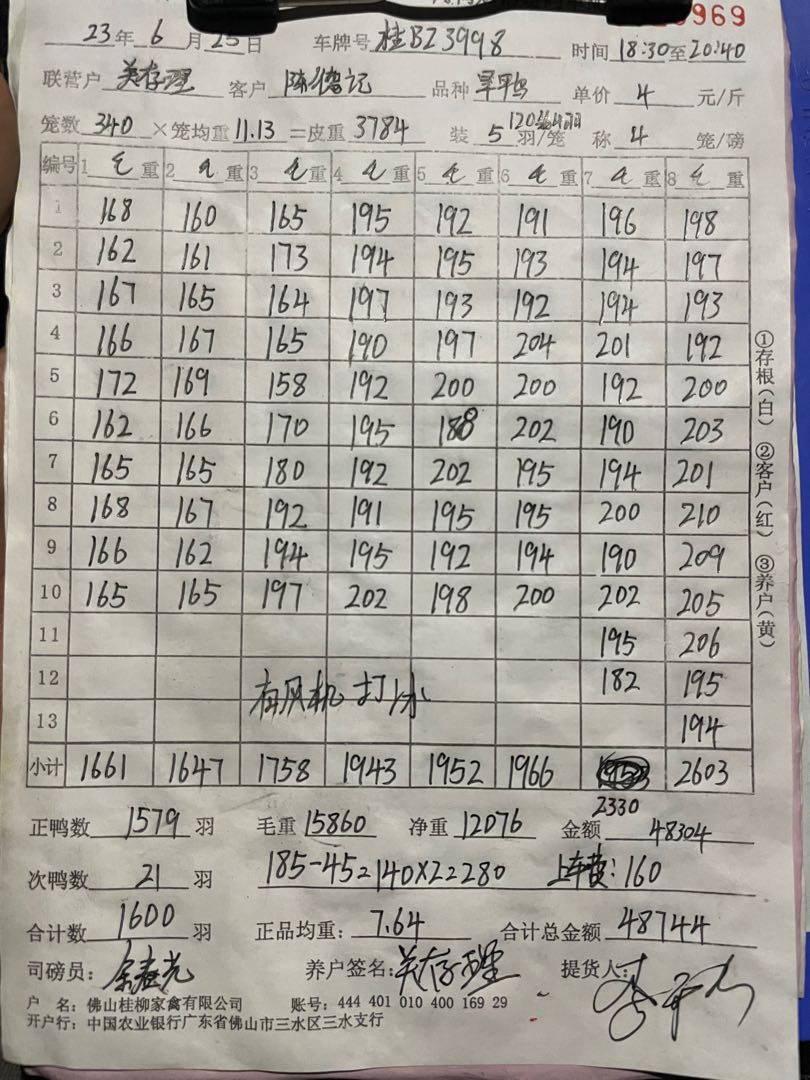 0969
23年 6月 25日 车牌号 桂BZ3998 时间 18:30至20:40
联营户 关存理 客户 陈德记 品种 旱鸭 单价 4 元/斤
笼数 340 ×笼均重 11.13 =皮重 3784 装 5 羽/笼 称 4 笼/磅
编号 1 毛 重 2 毛 重 3 毛 重 4 毛 重 5 毛 重 6 毛 重 7 毛 重 8 毛 重
1 168 160 165 195 192 191 196 198
2 162 161 173 194 195 193 194 197
3 167 165 164 197 193 192 194 193
4 166 167 165 190 197 204 201 192
5 172 169 158 192 200 200 192 200
6 162 166 170 195 188 202 190 203
7 165 165 180 192 202 195 194 201
8 168 167 192 191 195 195 200 210
9 166 162 194 195 192 194 190 209
10 165 165 197 202 198 200 202 205
11 195 206
12 有风机 打冰 182 195
13 194
小计 1661 1647 1758 1943 1952 1966 2603
2330
正鸭数 1579 羽 毛重 15860 净重 12076 金额 48304
次鸭数 21 羽 185-45=140×2=280 上车费:160
合计数 1600 羽 正品均重: 7.64 合计总金额 48744
司磅员: 养户签名: 关存理 提货人:
户 名: 佛山桂柳家禽有限公司 账号: 444 401 010 400 169 29
开户行: 中国农业银行广东省佛山市三水区三水支行
①存根(白) ②客户(红) ③养户(黄)